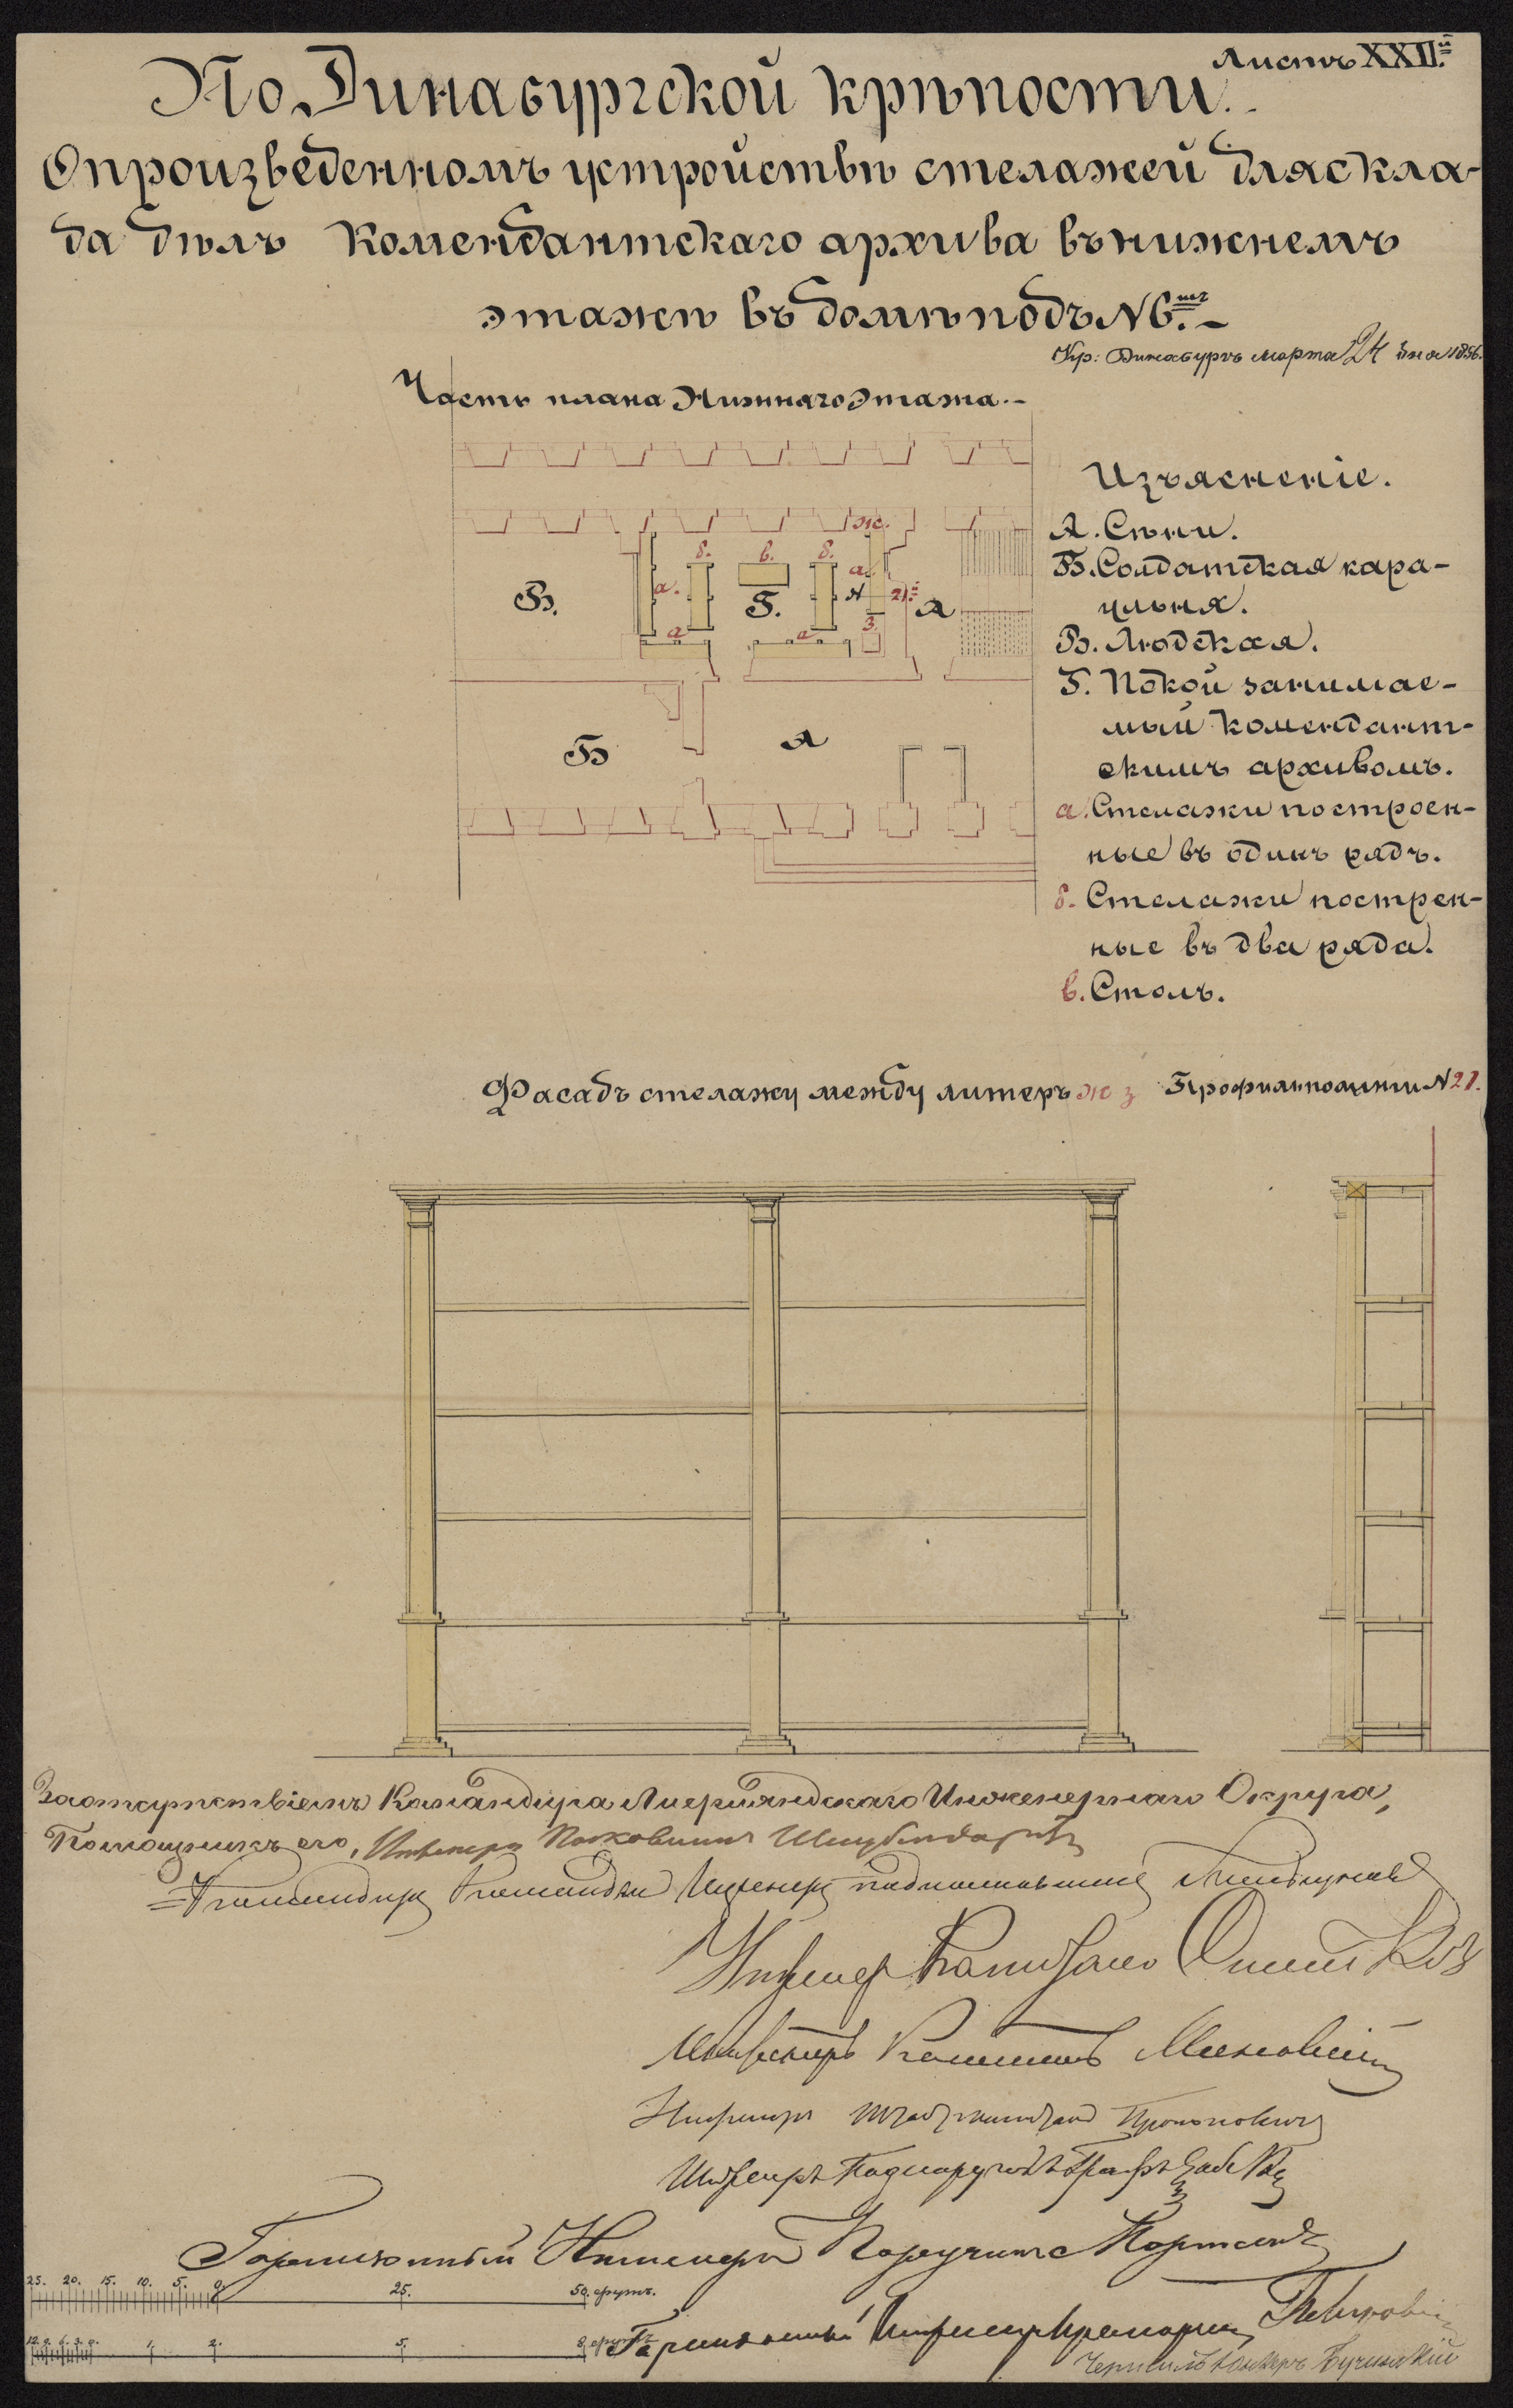 Листъ XXII.й
По Динабургской крѣпости.
О произведенномъ устройствѣ стелажей для скла-
да дѣлъ Комендантскаго архива въ нижнемъ
этажѣ въ домѣ подъ № 6.мъ
Кр: Динабургъ марта 24 дня 1856.
Часть плана Нижняго Этажа.
Изъясненіе.
А. Сѣни.
Б. Солдатская кара-
ульня.
В. Людская.
Г. Покой занимае-
мый комендант-
скимъ архивомъ.
а. Стелажи построен-
ные въ одинъ рядъ.
б. Стелажи пострен-
ные въ два ряда.
в. Столъ.
ж.
б. в. б.
а. а. 21.
В. Г. А
а а з
Б А
Фасадъ стелажу между литеръ ж з
Профиль по линіи № 21.
За отсутствіемъ Командира Лифляндскаго Инженернаго Округа,
Помощникъ его, Инженеръ Полковникъ
Командиръ Команды Инженеръ подполковникъ
Инженеръ Капитанъ
Инженеръ Капитанъ
Инженеръ Штабскапитанъ Прокоповичъ
Инженеръ Подпоручикъ Графъ
Гарнизонный Инженеръ Поручикъ
25. 20. 15. 10. 5. 0. 25. 50. футъ.
Гарнизонный Инженеръ Прапорщикъ
12. 9. 6. 3. 0. 1. 2. 5. 8. футъ
Чертилъ Юнкеръ Бучинскій